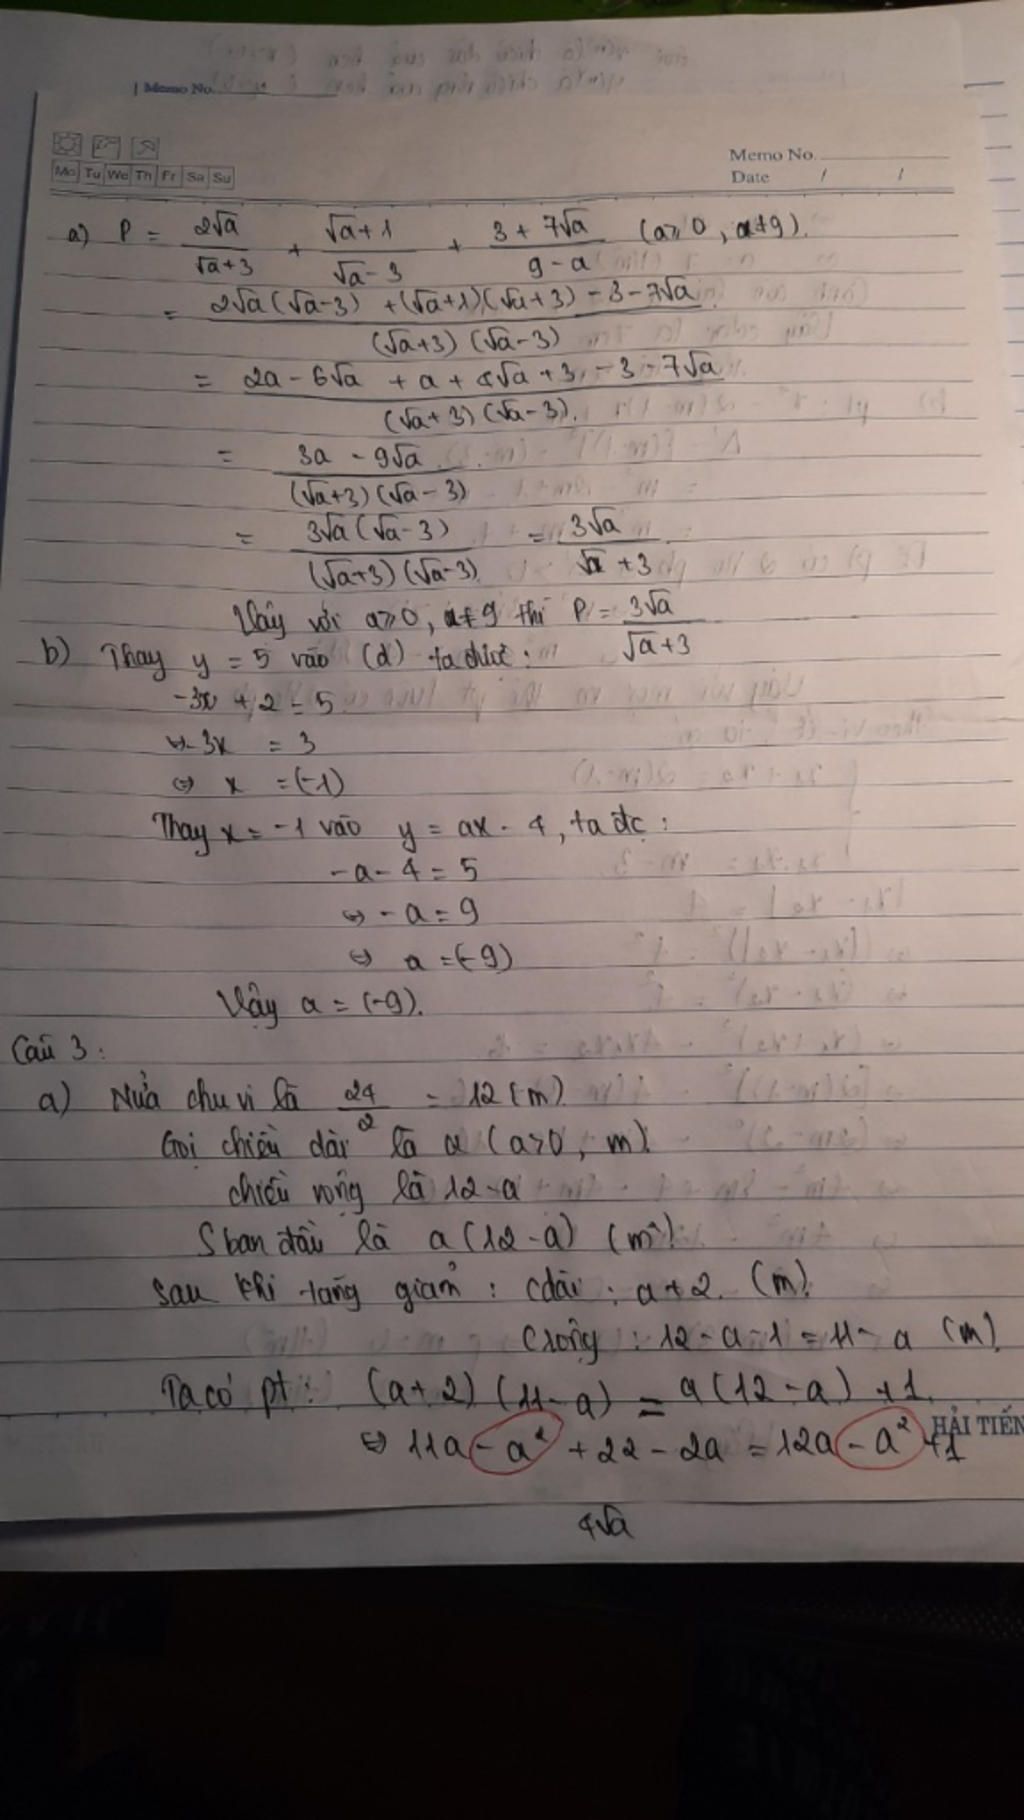 Memo No.
Memo No.
Mo Tu We Th Fr Sa Su
Date / /
a) P = 2√a/(√a+3) + (√a+1)/(√a-3) + (3+7√a)/(9-a) (a≥0, a≠9).
= (2√a(√a-3) + (√a+1)(√a+3) - 3 - 7√a)/((√a+3)(√a-3))
= (2a - 6√a + a + 4√a + 3 - 3 - 7√a)/((√a+3)(√a-3)).
= (3a - 9√a)/((√a+3)(√a-3))
= (3√a(√a-3))/((√a+3)(√a-3)) = 3√a/(√a+3)
Vậy với a≥0, a≠9 thì P = 3√a/(√a+3)
b) Thay y = 5 vào (d) ta được:
-3x + 2 = 5
⇔ -3x = 3
⇔ x = (-1)
Thay x = -1 vào y = ax - 4, ta đc:
-a - 4 = 5
⇔ -a = 9
⇔ a = (-9)
Vậy a = (-9).
Câu 3:
a) Nửa chu vi là 24/2 = 12 (m)
Gọi chiều dài là a (a>0, m)
chiều rộng là 12-a
S ban đầu là a(12-a) (m²)
Sau khi tăng giảm: Cdài: a+2. (m)
Crộng: 12-a-1 = 11-a (m).
Ta có pt: (a+2)(11-a) = a(12-a) + 1.
⇔ 11a - a² + 22 - 2a = 12a - a² + 1
HẢI TIẾN
4√a